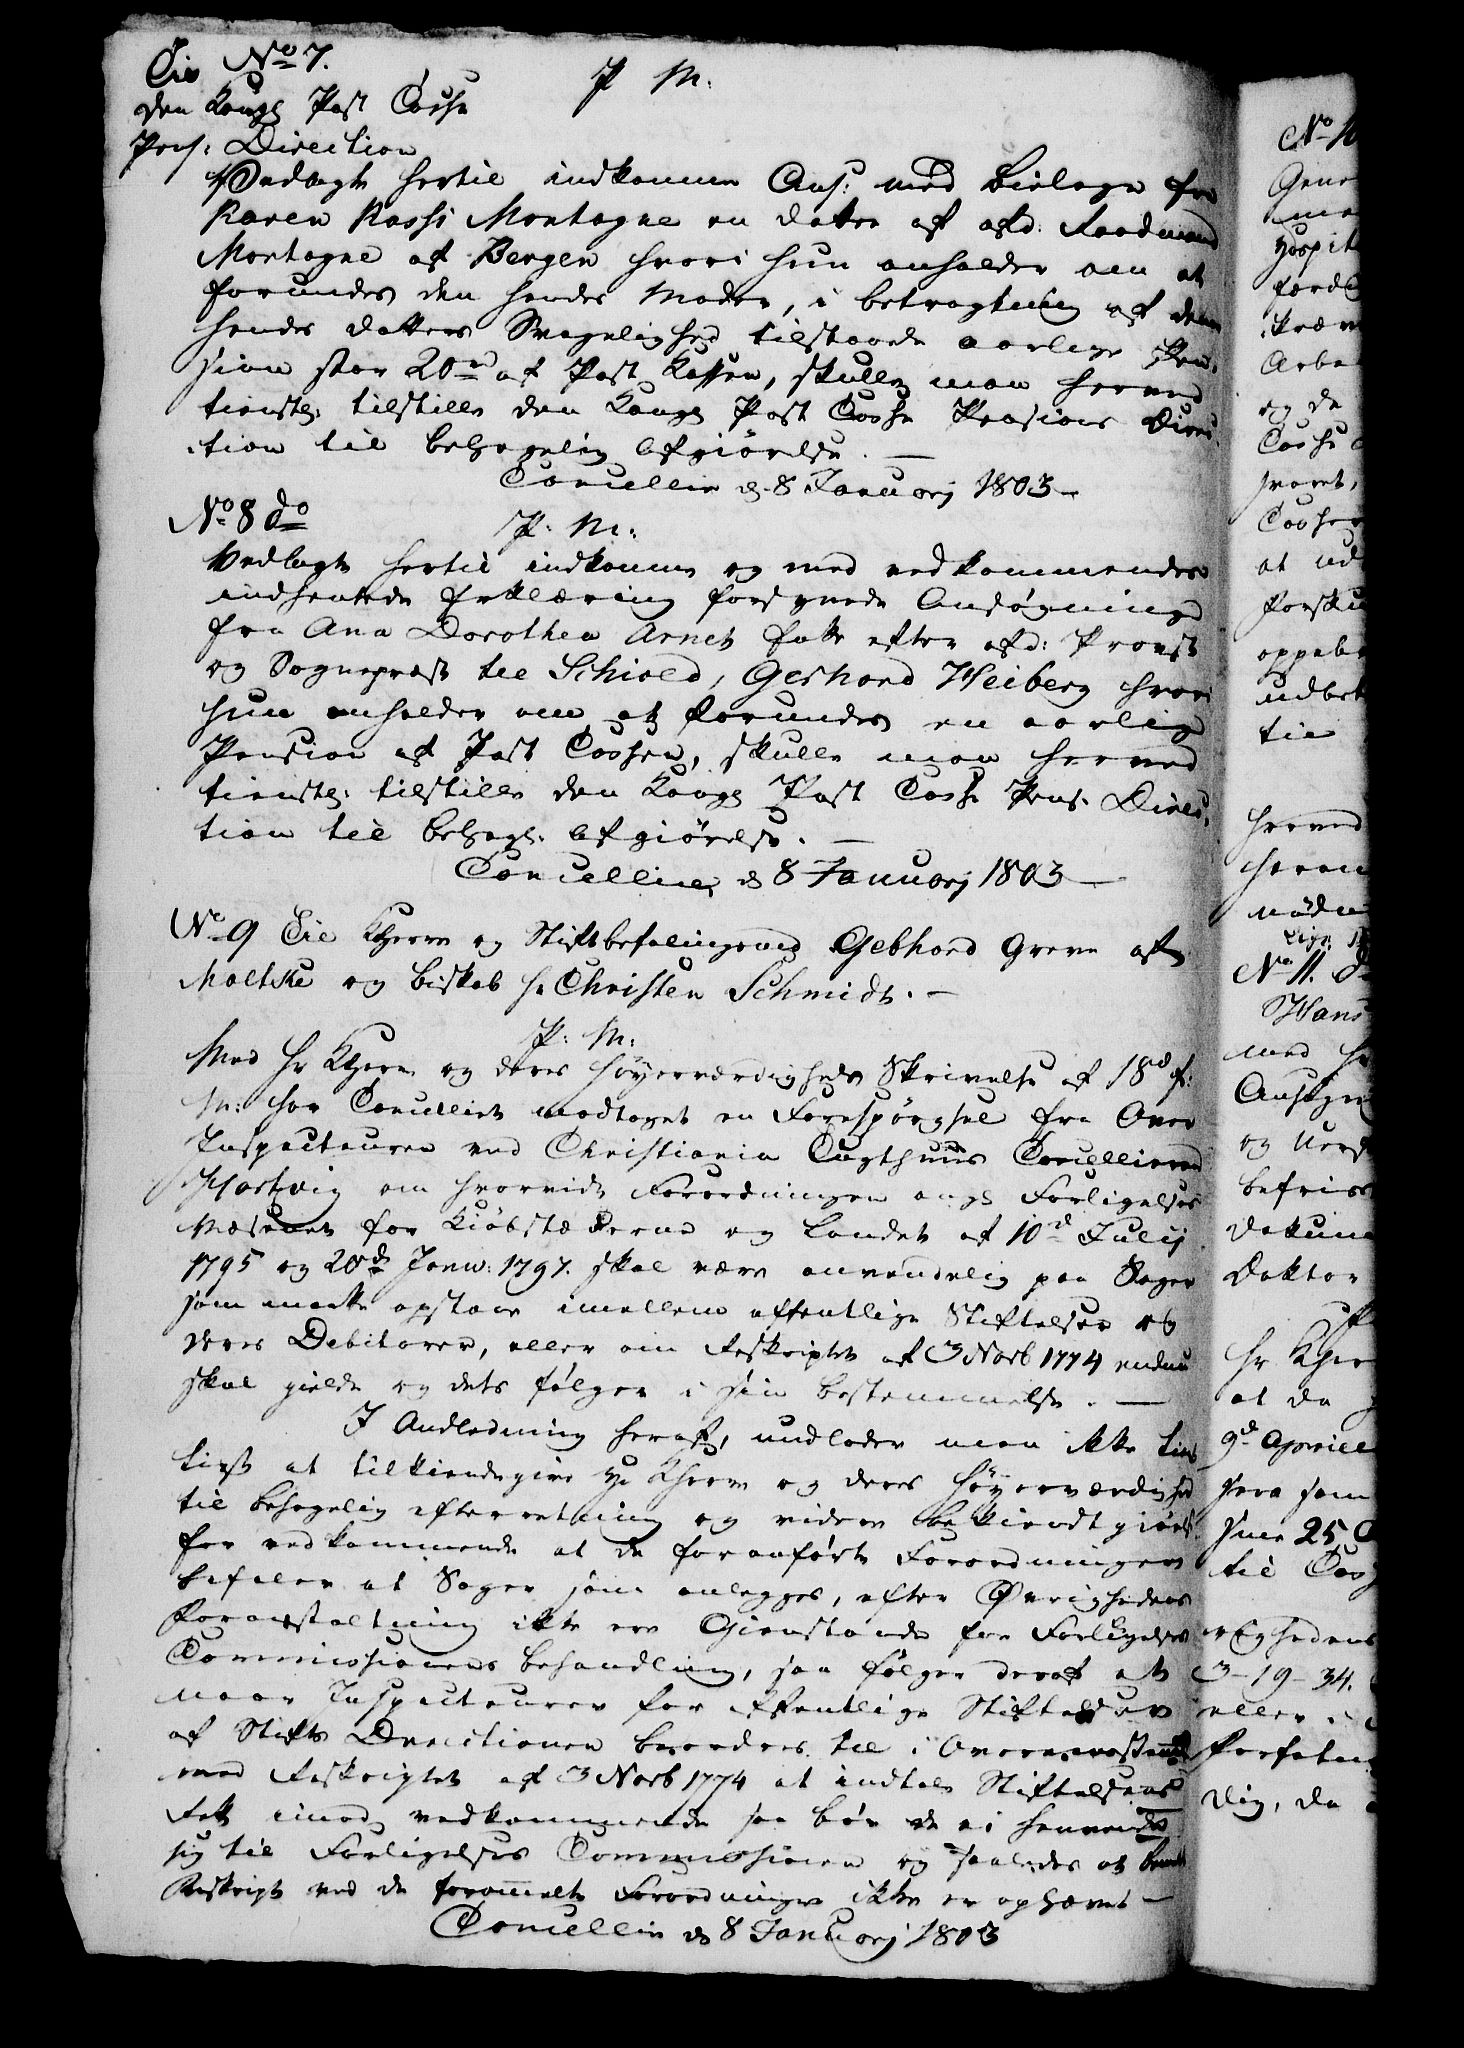 Til No 7.
den Kongl Post Casse
Pens: Direction
P M:
Vedlagte hertil indkomne Ans: med Bielage fra
Karen Rossi Montagne en datter af afd. Raadmand
Montagne af Bergen hvori hun anholder om at
forundes den hendes Moder, i betragtning af denne
hendes datters Svagelighed tilstaaede aarlige Pen¬
sion stor 20rd af Post Kassen, skulle man herved
tienstl. tilstille den Kongl Post Casse Pensions Direc¬
tion til behagelig Afgiørelse. —
Cancelliet d. 8 Januarj 1803 —
No 8 do
P. M:
Vedlagte hertil indkomne og med vedkommendes
indhentede Erklæring forsynede Ansøgning
fra Ana Dorothea Arnet Enke efter afd: Provst
og Sognepræst til Schiold, Gerhard Heiberg hvori
hun anholder om at forundes en aarlig
Pension af Post Cassen, skulle man herved
tienstl. tilstille den Kongl Post Casse Pens. Direc¬
tion til behagl. Afgiørelse. —
Cancelliet d 8 Januarj 1803 —
No 9 Til KHerre og Stiftbefalingsmd Gebhard Greve af
Moltke og Biskob Hr Christen Schmidt. —
P. M:
Med Hr KHerre og deres Høyærværdigheds Skrivelse af 18d f:
M: har Cancelliet modtaget en Forespørgsel fra Over
Inspecteuren ved Christiania Tugthuus Cancellieraad
Hartvig om hvorvidt Forordningen angl Forligelses
Væsenet for Kiøbstæderne og Landet af 10d Julij
1795 og 20de Janu: 1797. skal være anvendelig paa Sager
som maatte opstaae imellem offentlige Stiftelser og
deres Debitorer, eller om Reskriptet af 3 Novb 1774 endnu
skal gielde og dets følger i sin bestemmelse. —
I Anledning heraf, undlader man ikke tien
tienst at tilkiendegive Hr KHerre og deres Høyærværdighed
til behagelig efterretning og videre bekiendtgiørelse
for vedkommende at da foranførte Forordninger
befaler at Sager som anlegges, efter Øvrighedens
Foranstaltning ikke ere Gienstande for Forligelses
Commissionens behandling, saa følger deraf at
naar Inspecteuren for offentlige Stiftelser
af Stifts Directionen beordres til i Overensstemmelse
med Reskriptet af 3 Novb 1774 at indtale Stiftelsens
Ret imod vedkommende saa bør de ei henvende
sig til Forligelses Commissionen og saaledes at bemte
Reskript ved de forommelte Forordninger ikke er ophævet —
Cancelliet d 8 Januarj 1803
No 10
Hospit
Arbe
og de
Casse
svaret,
at ud
oppeb
udbet
til
herved
No 11. d
Hans
med Hr
og
befrie
Dokum
Doktor
Hr KHer
at da
9d Aprill
som
25
til
3-19-34.
eller
dig, da